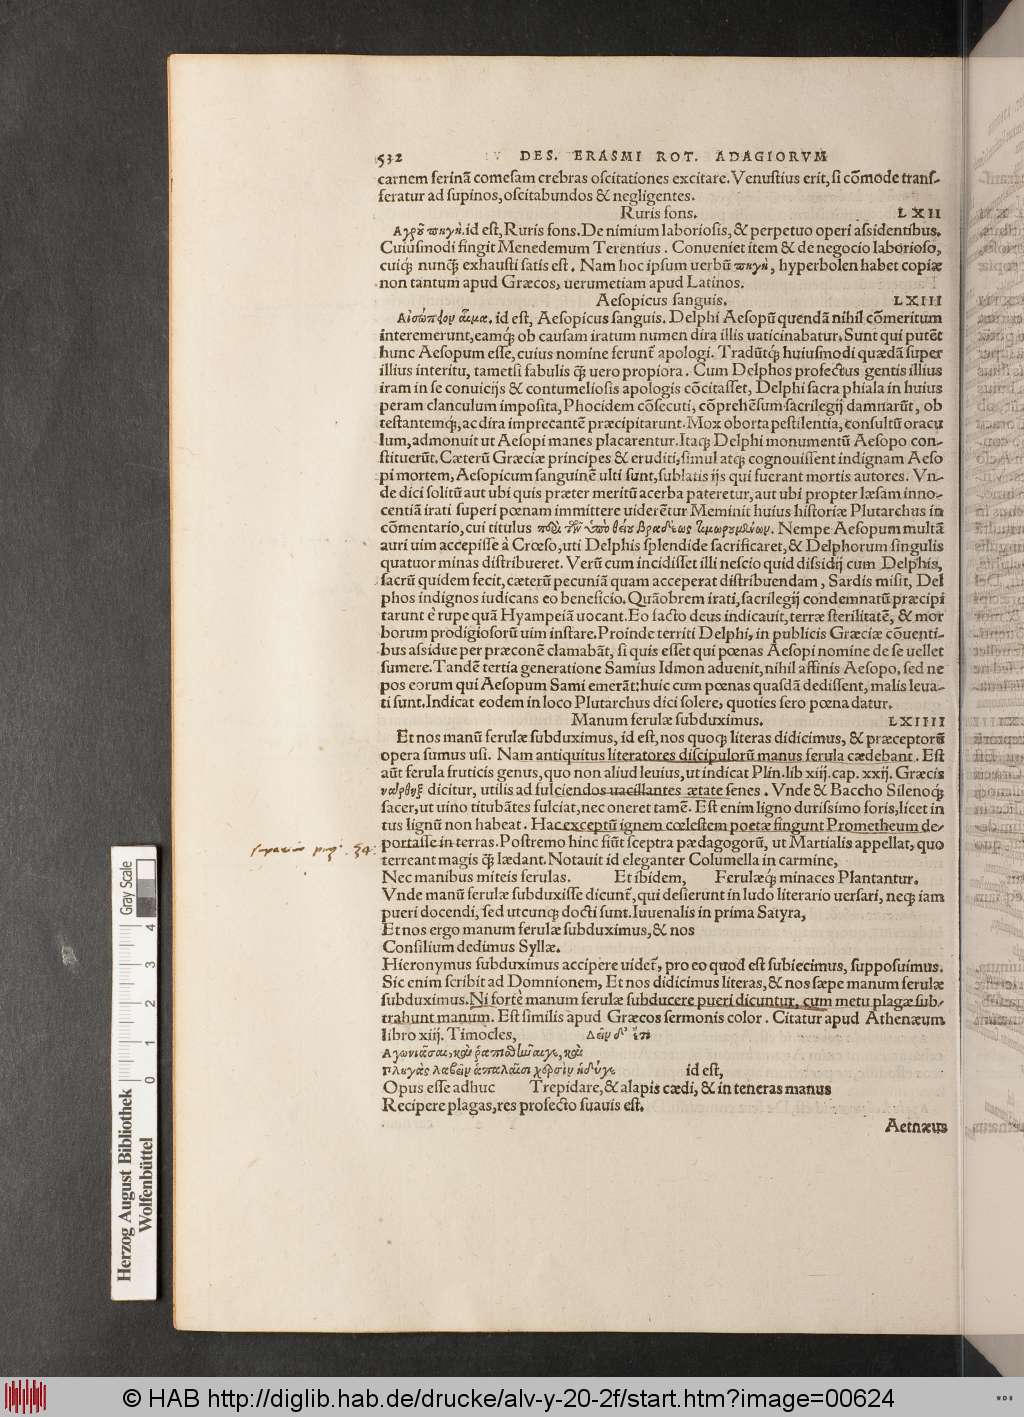 532 DES. ERASMI ROT. ADAGIORVM
carnem ferinã comesam crebras oscitationes excitare. Venustius erit, si cõmode trans-
feratur ad supinos, oscitabundos & negligentes.
Ruris fons. LXII
Αγροῦ πηγὴ. id est, Ruris fons. De nimium laboriosis, & perpetuo operi assidentibus.
Cuiusmodi fingit Menedemum Terentius. Conueniet item & de negocio laborioso,
cuiq; nunq̃ exhausti satis est. Nam hoc ipsum uerbũ πηγὴ, hyperbolen habet copiæ
non tantum apud Græcos, uerumetiam apud Latinos.
Aesopicus sanguis. LXIII
Αἰσώπειον αἷμα. id est, Aesopicus sanguis. Delphi Aesopũ quendã nihil cõmeritum
interemerunt, eamq́; ob causam iratum numen dira illis uaticinabatur. Sunt qui putẽt
hunc Aesopum esse, cuius nomine ferunt̃ apologi. Tradũtq́; huiusmodi quædã super
illius interitu, tametsi fabulis q̃ uero propiora. Cum Delphos profectus gentis illius
iram in se conuicijs & contumeliosis apologis cõcitasset, Delphi sacra phiala in huius
peram clanculum imposita, Phocidem cõsecuti, cõprehẽsum sacrilegij damnarũt, ob
testantemq́;, ac dira imprecantẽ præcipitarunt. Mox oborta pestilentia, consultũ oracu
lum, admonuit ut Aesopi manes placarentur. Itaq; Delphi monumentũ Aesopo con-
stituerũt. Cæterũ Græciæ principes & eruditi, simul atq; cognouissent indignam Aeso
pi mortem, Aesopicum sanguinẽ ulti sunt, sublatis ijs qui fuerant mortis autores. Vn-
de dici solitũ aut ubi quis præter meritũ acerba pateretur, aut ubi propter læsam inno-
centiã irati superi pœnam immittere uiderẽtur Meminit huius historiæ Plutarchus in
cõmentario, cui titulus περὶ τῶν ὑπὸ θείου βραδέως τιμωρουμένων. Nempe Aesopum multã
auri uim accepisse à Crœso, uti Delphis splendide sacrificaret, & Delphorum singulis
quatuor minas distribueret. Verũ cum incidisset illi nescio quid dissidij cum Delphis,
sacrũ quidem fecit, cæterũ pecuniã quam acceperat distribuendam, Sardis misit, Del
phos indignos iudicans eo beneficio. Quãobrem irati, sacrilegij condemnatũ præcipi
tarunt è rupe quã Hyampeiã uocant. Eo facto deus indicauit, terræ sterilitatẽ, & mor
borum prodigiosorũ uim instare. Proinde territi Delphi, in publicis Græciæ cõuenti-
bus assidue per præconẽ clamabãt, si quis esset qui pœnas Aesopi nomine de se uellet
sumere. Tandẽ tertia generatione Samius Idmon aduenit, nihil affinis Aesopo, sed ne
pos eorum qui Aesopum Sami emerãt: huic cum pœnas quasdã dedissent, malis leua-
ti sunt. Indicat eodem in loco Plutarchus dici solere, quoties sero pœna datur.
Manum ferulæ subduximus. LXIIII
Et nos manũ ferulæ subduximus, id est, nos quoq; literas didicimus, & præceptorũ
opera sumus usi. Nam antiquitus literatores discipulorũ manus ferula cædebant. Est
aũt ferula fruticis genus, quo non aliud leuius, ut indicat Plin. lib xiij. cap. xxij. Græcis
ναρθηξ dicitur, utilis ad fulciendos uacillantes ætate senes. Vnde & Baccho Silenoq́;
sacer, ut uino titubãtes fulciat, nec oneret tamẽ. Est enim ligno durissimo foris, licet in
tus lignũ non habeat. Hac exceptũ ignem cœlestem poetæ fingunt Prometheum de-
portasse in terras. Postremo hinc fiũt sceptra pædagogorũ, ut Martialis appellat, quo
terreant magis q̃ lædant. Notauit id eleganter Columella in carmine,
Nec manibus miteis ferulas. Et ibidem, Ferulæq́; minaces Plantantur.
Vnde manũ ferulæ subduxisse dicunt̃, qui desierunt in ludo literario uersari, neq; iam
pueri docendi, sed utcunq; docti sunt. Iuuenalis in prima Satyra,
Et nos ergo manum ferulæ subduximus, & nos
Consilium dedimus Syllæ.
Hieronymus subduximus accipere uidet̃, pro eo quod est subiecimus, supposuimus.
Sic enim scribit ad Domnionem, Et nos didicimus literas, & nos sæpe manum ferulæ
subduximus. Ni fortè manum ferulæ subducere pueri dicuntur, cum metu plagæ sub-
trahunt manum. Est similis apud Græcos sermonis color. Citatur apud Athenæum
libro xiij. Timocles, Δεῖν δ' ἔτι
Αγωνιᾶσαι, καὶ ῥαπισθῆναί γε, καὶ
Πληγὰς λαβεῖν ἁπαλαῖσι χερσὶν ἡδύ γε id est,
Opus esse adhuc Trepidare, & alapis cædi, & in teneras manus
Recipere plagas, res profecto suauis est.
Aetnæus
Gray Scale
4 3 2 1 0
Herzog August Bibliothek
Wolfenbüttel
© HAB http://diglib.hab.de/drucke/alv-y-20-2f/start.htm?image=00624